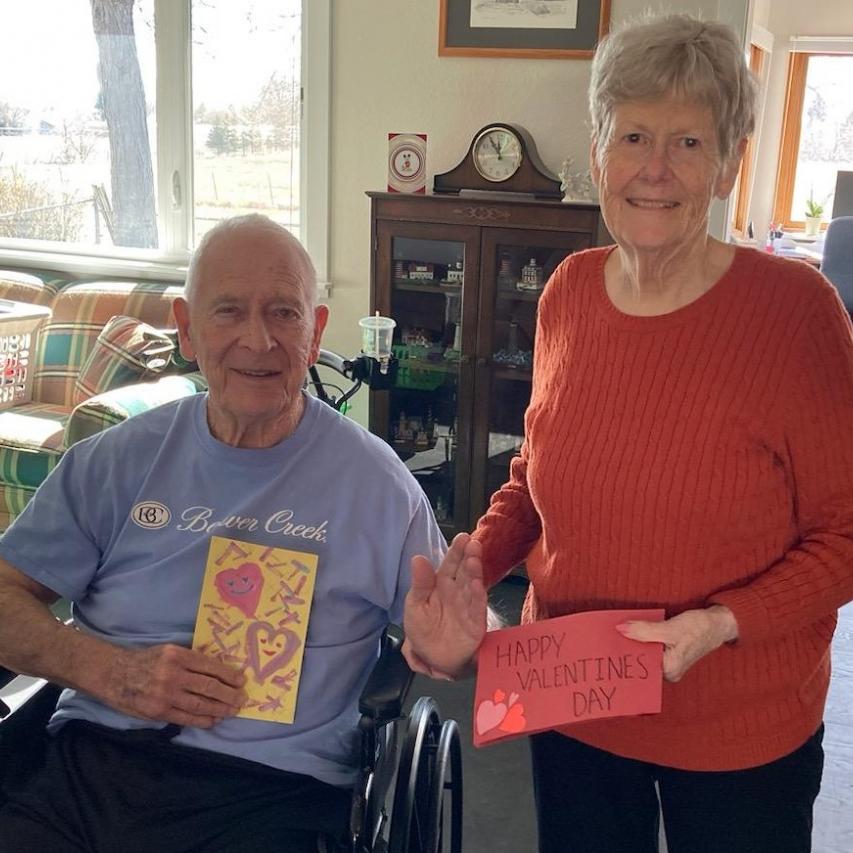 BC Beaver Creek.
HAPPY
VALENTINES
DAY